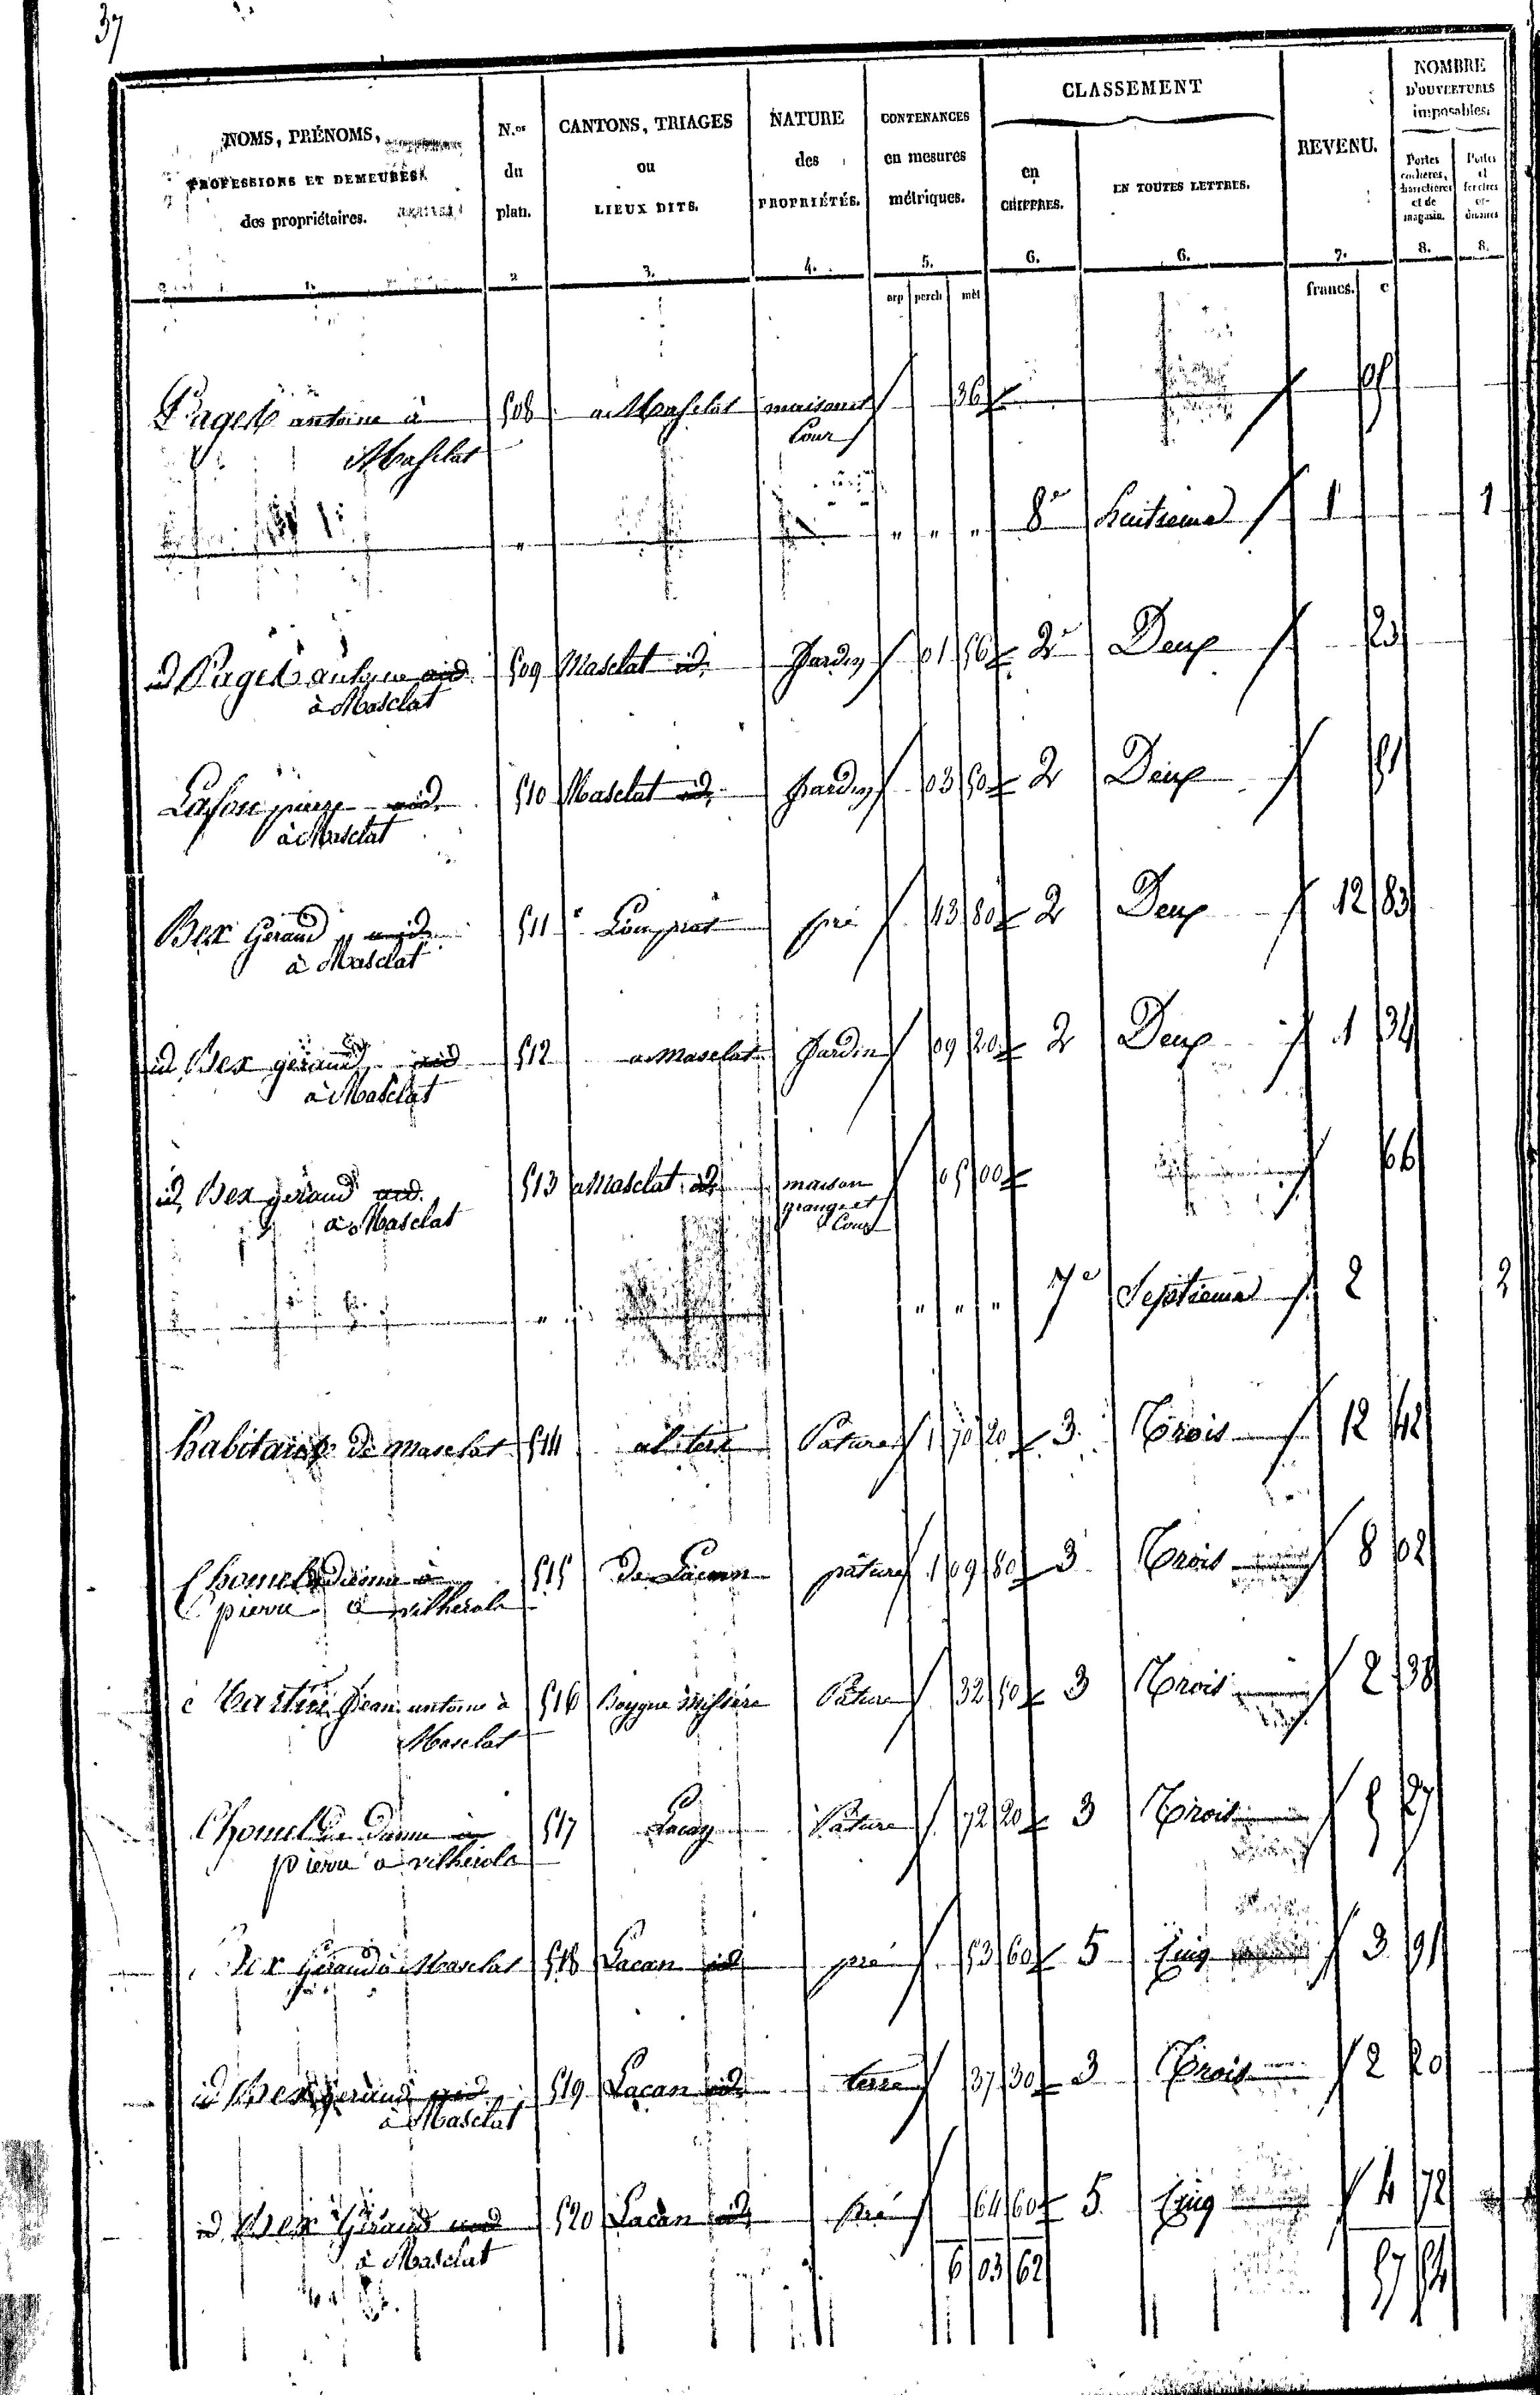 37
NOMS, PRÉNOMS,
PROFESSIONS ET DEMEURES
des propriétaires.
1.
N.os
du
plan.
2
CANTONS, TRIAGES
ou
LIEUX DITS.
3.
NATURE
des
PROPRIÉTÉS.
4.
CONTENANCES
en mesures
métriques.
5.
arp perch mèt
CLASSEMENT
en
CHIFFRES.
6.
EN TOUTES LETTRES.
6.
REVENU.
7.
francs. c
NOMBRE
D'OUVERTURES
imposables.
Portes
cochères,
charretières
et de
magasin.
8.
Portes
et
fenêtres
or-
dinaires
8.
Pagès antoine à 508 a Masclat maison et 36 05
Masclat Cour
" " " " 8e huitieme 1 1
id Pagès antoine aid. 509 Masclat id. Jardin 01 56 2e Deux 23
à Masclat
Lafon pierre aid. 510 Masclat id. Jardin 03 50 2 Deux 51
à Masclat
Bex Géraud aid. 511 Lou prat pré 43 80 2 Deux 12 83
à Masclat
id Bex géraud aid 512 a Masclat Jardin 09 20 2 Deux 1 34
à Masclat
id Bex géraud aid. 513 a Masclat id. maison 05 00 66
à Masclat grange et
Cour
" " " " 7e Septieme 2 2
habitants de masclat 514 Pature 1 70 20 3 Trois 12 42
Chomel a 515 de Lacan pâture 1 09 80 3 Trois 8 02
pierre à vilhérole
Jean antoine à 516 Pature 32 50 3 Trois 2 38
Masclat
Chomel à 517 Lacan Pature 72 20 3 Trois 5 27
pierre a vilhérole
Bex Géraud à Masclat 518 Lacan id. pré 53 60 5 Cinq 3 91
id Bex géraud aid. 519 Lacan id. terre 37 30 3 Trois 2 20
à Masclat
id Bex Géraud aid 520 Lacan id. Pré 64 60 5 Cinq 4 72
à Masclat
6 03 62 57 54